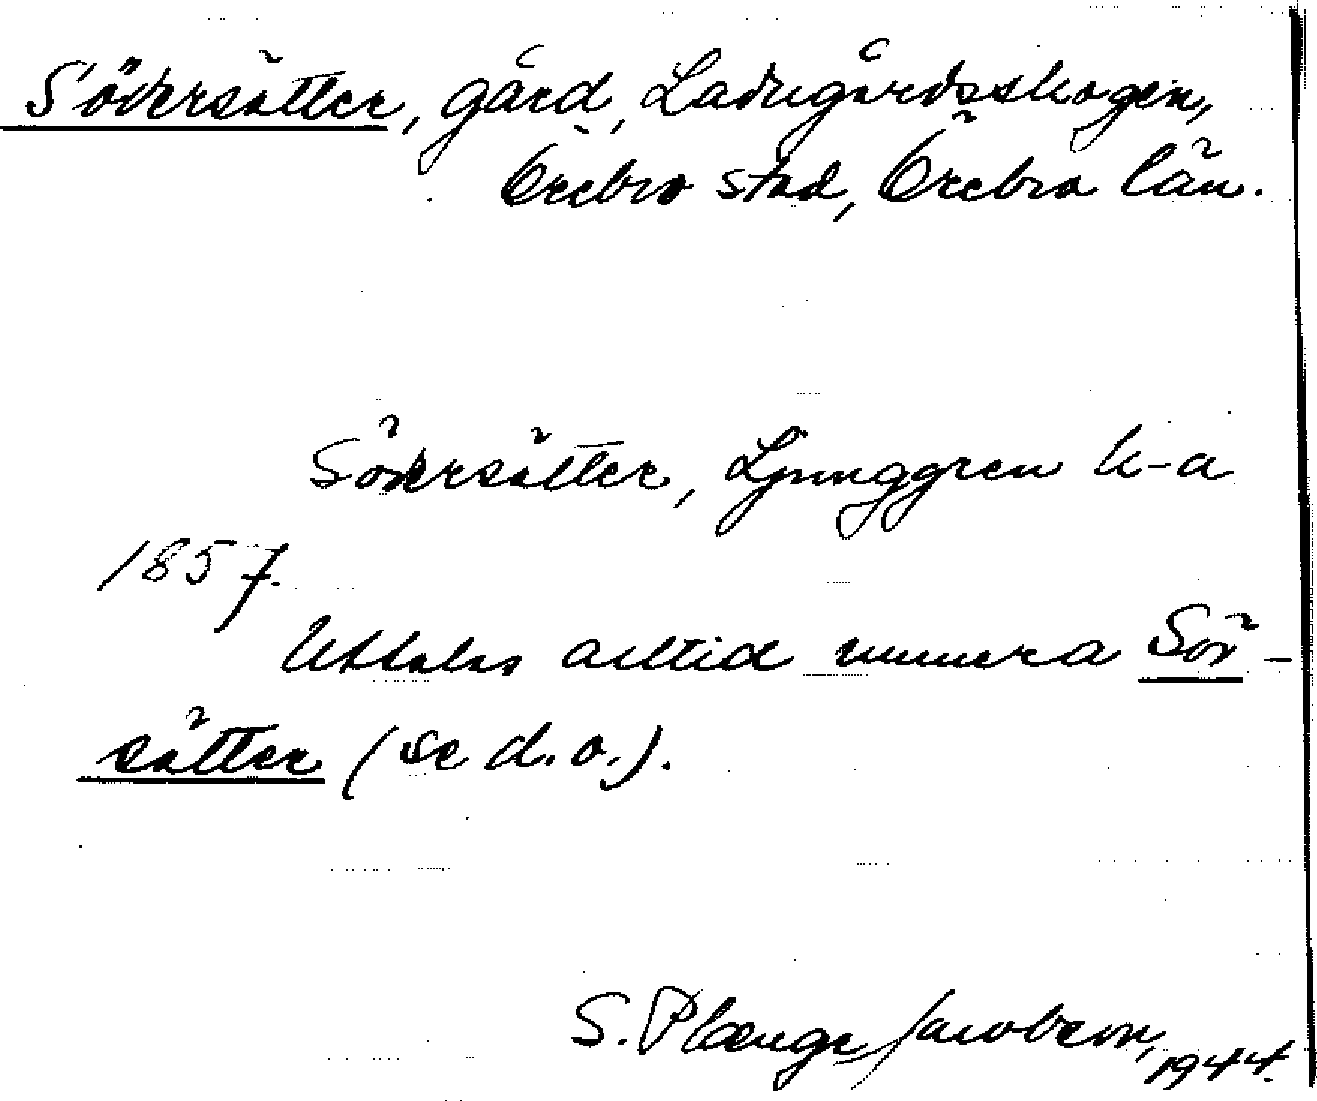 Södersätter, gård, Ladugårdsskogen,
Örebro stad, Örebro län.
Södersätter, Ljunggren k-a
1857.
Uttalas alltid numera Sör-
sätter (se d.o.).
S. Plænge Jacobson,
1944.